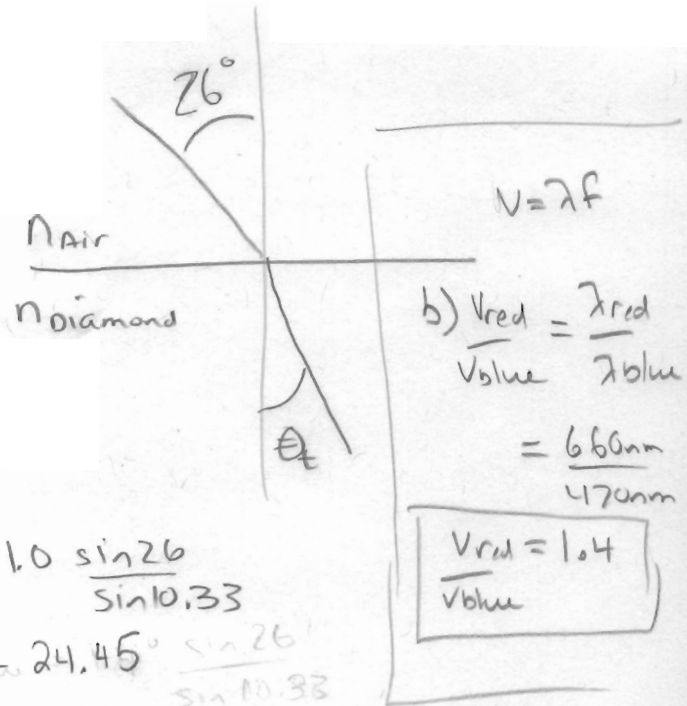 26°
nAir
nDiamond
θt
1.0 sin26
sin10.33
24.45° sin 26
sin 10.33
V=λf
b) Vred = λred
Vblue λblue
= 660nm
470nm
Vred = 1.4
Vblue